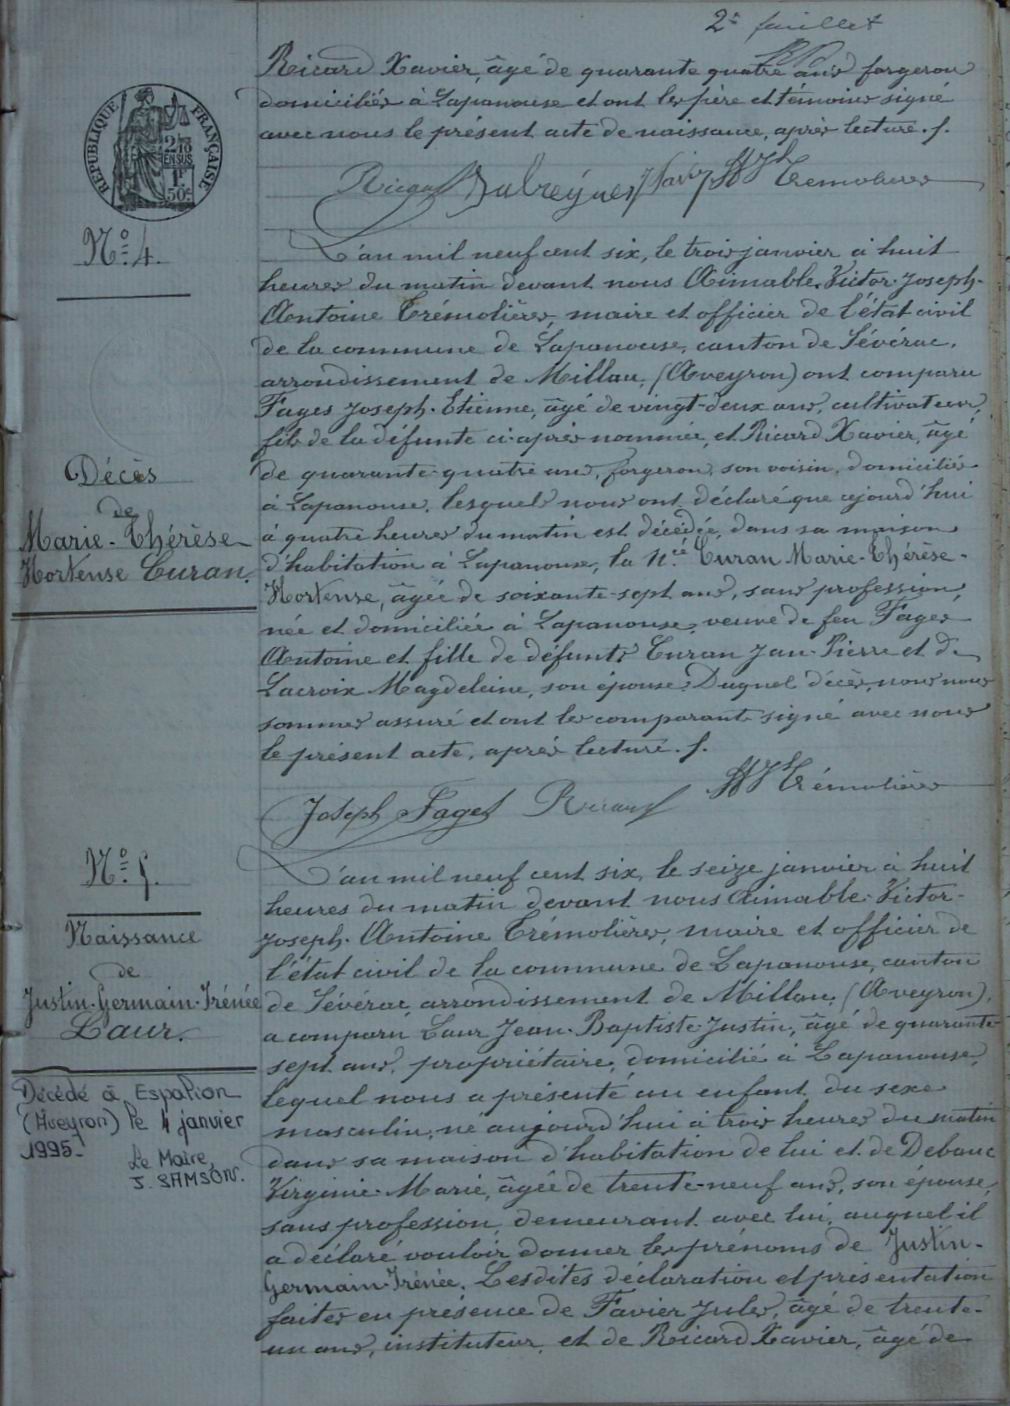 2e feuillet
Ricard Xavier, âgé de quarante quatre ans forgeron
domiciliés à Lapanouse et ont les père et témoins signé
avec nous le présent acte de naissance, après lecture. f.
RÉPUBLIQUE FRANÇAISE
2/10
EN SUS
1F
50c
Dalreynes Trémolières
No. 4.
L'an mil neuf cent six, le trois janvier à huit
heures du matin devant nous Aimable, Victor-Joseph-
Antoine Trémolières, maire et officier de l'état civil
de la commune de Lapanouse, canton de Sévérac,
arrondissement de Millau, (Aveyron) ont comparu
Fages Joseph-Etienne, âgé de vingt-deux ans, cultivateur,
fils de la défunte ci-après nommée, et Ricard Xavier, âgé
de quarante-quatre ans, forgeron, son voisin, domiciliés
à Lapanouse, lesquels nous ont déclaré que cejourd'hui
à quatre heures du matin est décédée, dans sa maison
d'habitation à Lapanouse, la n.ée Curan Marie-Thérèse-
Hortense, âgée de soixante-sept ans, sans profession,
née et domiciliée à Lapanouse, veuve de feu Fages
Antoine et fille de défunts Curan Jean-Pierre et de
Lacroix Magdeleine, son épouse. Duquel décès, nous nous
sommes assuré et ont les comparants signé avec nous
le présent acte, après lecture. f.
Décès
de
Marie-Thérèse
Hortense Curan.
Joseph Fages Ricard Trémolières
No. 5.
L'an mil neuf cent six, le seize janvier à huit
heures du matin devant nous Aimable-Victor-
Joseph-Antoine Trémolières, maire et officier de
l'état civil de la commune de Lapanouse, canton
de Sévérac, arrondissement de Millau, (Aveyron),
a comparu Laur Jean-Baptiste-Justin, âgé de quarante-
sept ans, propriétaire, domicilié à Lapanouse,
lequel nous a présenté un enfant du sexe
masculin, né aujourd'hui à trois heures du matin
dans sa maison d'habitation de lui et de Debanc
Virginie-Marie, âgée de trente-neuf ans, son épouse,
sans profession, demeurant avec lui, auquel il
a déclaré vouloir donner les prénoms de Justin-
Germain-Irénée. Lesdites déclaration et présentation
faites en présence de Favier Jules, âgé de trente-
un ans, instituteur, et de Ricard Xavier, âgé de
Naissance
de
Justin-Germain-Irénée
Laur.
Décédé à Espalion
(Aveyron) le 4 janvier
1995-
Le Maire,
J. SAMSON.